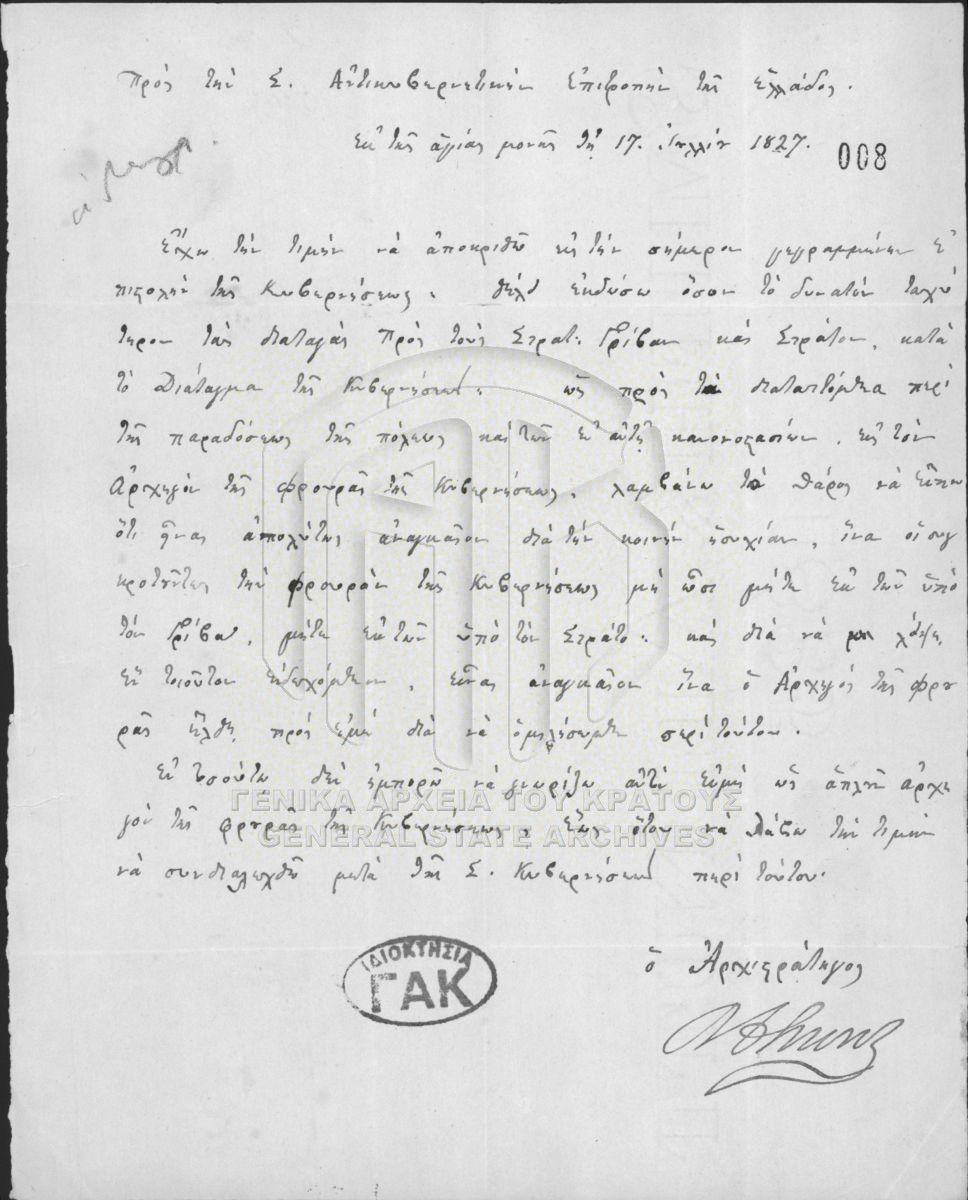 Πρὸς τὴν Σ. Ἀντικυβερνητικὴν Ἐπιτροπὴν τῆς Ἑλλάδος.
Ἐκ τῆς ἁγίας μονῆς τῇ 17. Ἰουλλίου 1827.
008
Ἔχω τὴν τιμὴν νὰ ἀποκριθῶ εἰς τὴν σήμερον γεγραμμένην ἐ
πιστολὴν τῆς Κυβερνήσεως. θέλω ἐκδώσω ὅσον τὸ δυνατὸν ταχύ
τερον τὰς διαταγὰς πρὸς τοὺς Στρατ: Γρίβαν καὶ Στράτον, κατὰ
τὸ Διάταγμα τῆς Κυβερνήσεως: ὡς πρὸς τὰ διαταττόμενα περὶ
τῆς παραδόσεως τῆς πόλεως καὶ τῶν ἐν αὐτῇ κανονοστασίων, εἰς τὸν
Ἀρχηγὸν τῆς φρουρᾶς τῆς Κυβερνήσεως, λαμβάνω τὸ θάρος νὰ εἴπω
ὅτι εἶναι ἀπολύτως ἀναγκαῖον διὰ τὴν κοινὴν ἡσυχίαν, ἵνα οἱ συγ
κροτοῦντες τὴν φρουρὰν τῆς Κυβερνήσεως μὴ ὦσι μήτε ἐκ τῶν ὑπὸ
τὸν Γρίβα, μήτε ἐκ τῶν ὑπὸ τὸν Στράτο: καὶ διὰ νὰ μὴ
ἓν τοιοῦτον ἐνδεχόμενον, εἶναι ἀναγκαῖον ἵνα ὁ Ἀρχηγὸς τῆς φρου
ρᾶς ἔλθῃ πρὸς ἐμὲ διὰ νὰ ὁμιλήσωμεν περὶ τούτου.
Ἐν τοσούτῳ δὲν ἐμπορῶ νὰ γνωρίζω αὐτὸν εἰμὴ ὡς ἁπλῆν ἀρχη
γὸν τῆς φρουρᾶς τῆς Κυβερνήσεως, ἕως ὅτου νὰ λάβω τὴν τιμὴν
νὰ συνδιαλεχθῶ μετὰ τῆς Σ. Κυβερνήσεως περὶ τούτου.
ΓΕΝΙΚΑ ΑΡΧΕΙΑ ΤΟΥ ΚΡΑΤΟΥΣ
GENERAL STATE ARCHIVES
ΙΔΙΟΚΤΗΣΙΑ
ΓΑΚ
ὁ Ἀρχιστράτηγος